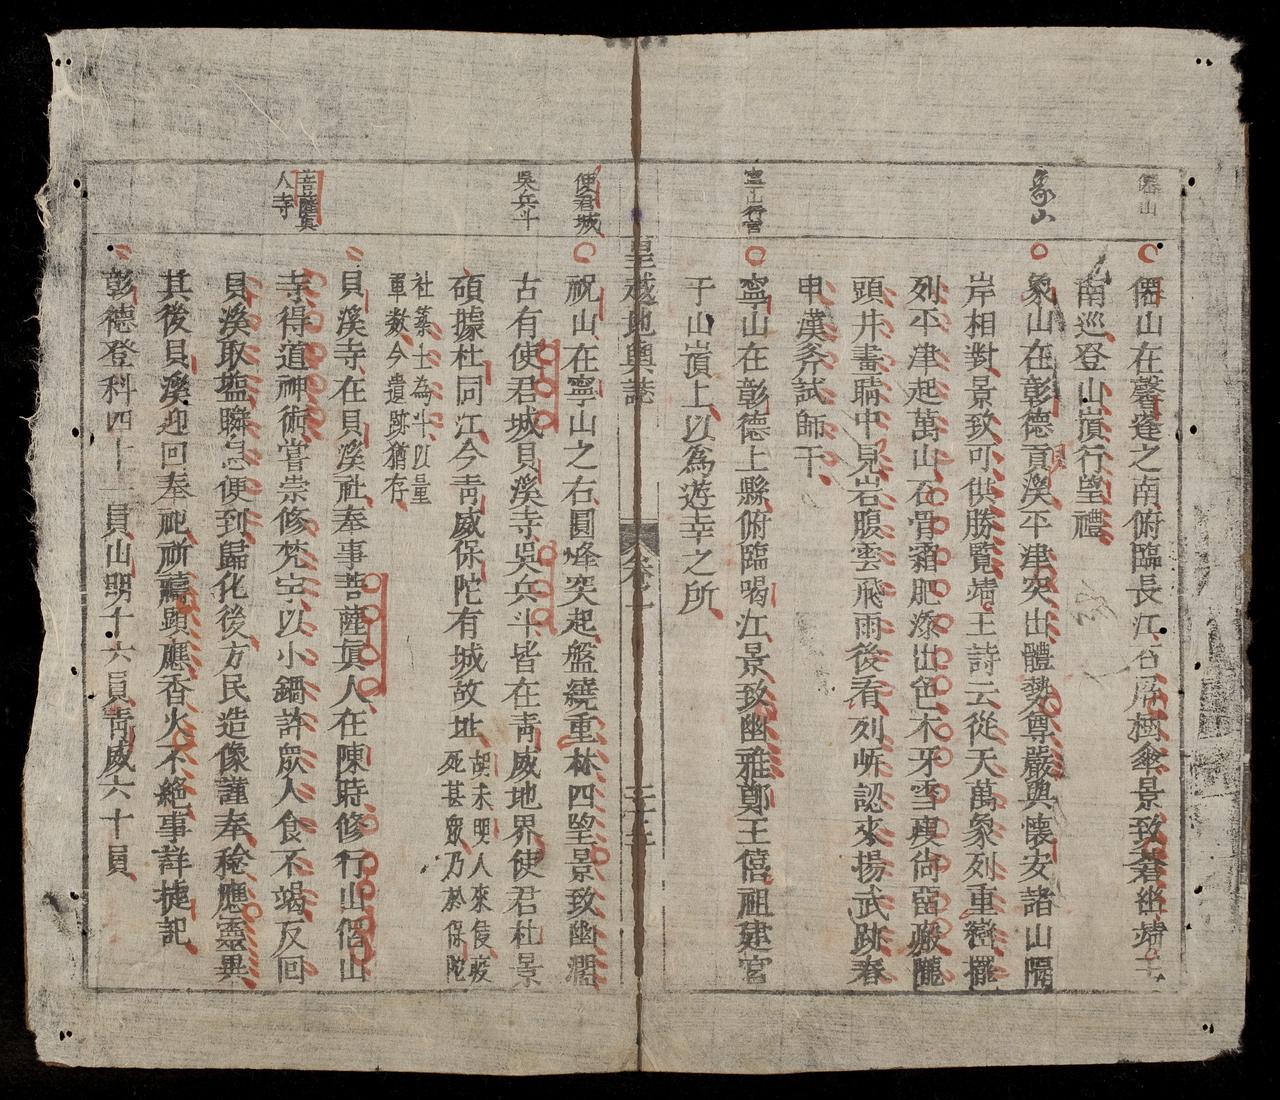 僊山
象山
寧山行宮
僊山在馨蓬之南俯臨長江石屏極傘景致蒼幽靖王
南巡登山嵿行望禮
象山在彰德貢溪平津突出體勢尊嚴與懷安諸山隔
岸相對景致可供勝覽靖王詩云從天萬象列重巒擺
列平津起萬山石骨霜肥添出色木牙雪瘐尚留殷隴
頭井畫睛中見岩腹雲飛雨後看列峙認來揚武跡春
申漢斧試師干
寧山在彰德上縣俯臨喝江景致幽雅鄭王僖祖建宮
于山嵿上以為遊幸之所
皇越地輿誌
卷之一
三十五
便君城
吳兵斗
菩薩眞
人寺
祝山在寧山之右圓烽突起盤繞重林四望景致幽濶
古有使君城貝溪寺吳兵斗皆在靑威地界使君杜景
碩據杜同江今靑威保陀有城故址胡末明人來侵疲
死甚衆乃於保陀
社築土為斗以量
軍数今遺跡猶存
貝溪寺在貝溪社奉事菩薩眞人在陳時修行山僊山
寺得道神術嘗崇修梵宇以小鍋許衆人食不竭反回
貝溪取塩瞬息便到歸化後方民造像謹奉稔應靈異
其後貝溪迎回奉祀祈禱顯應香火不絶事詳捷記
彰德登科四十二員山明十六員靑威六十員